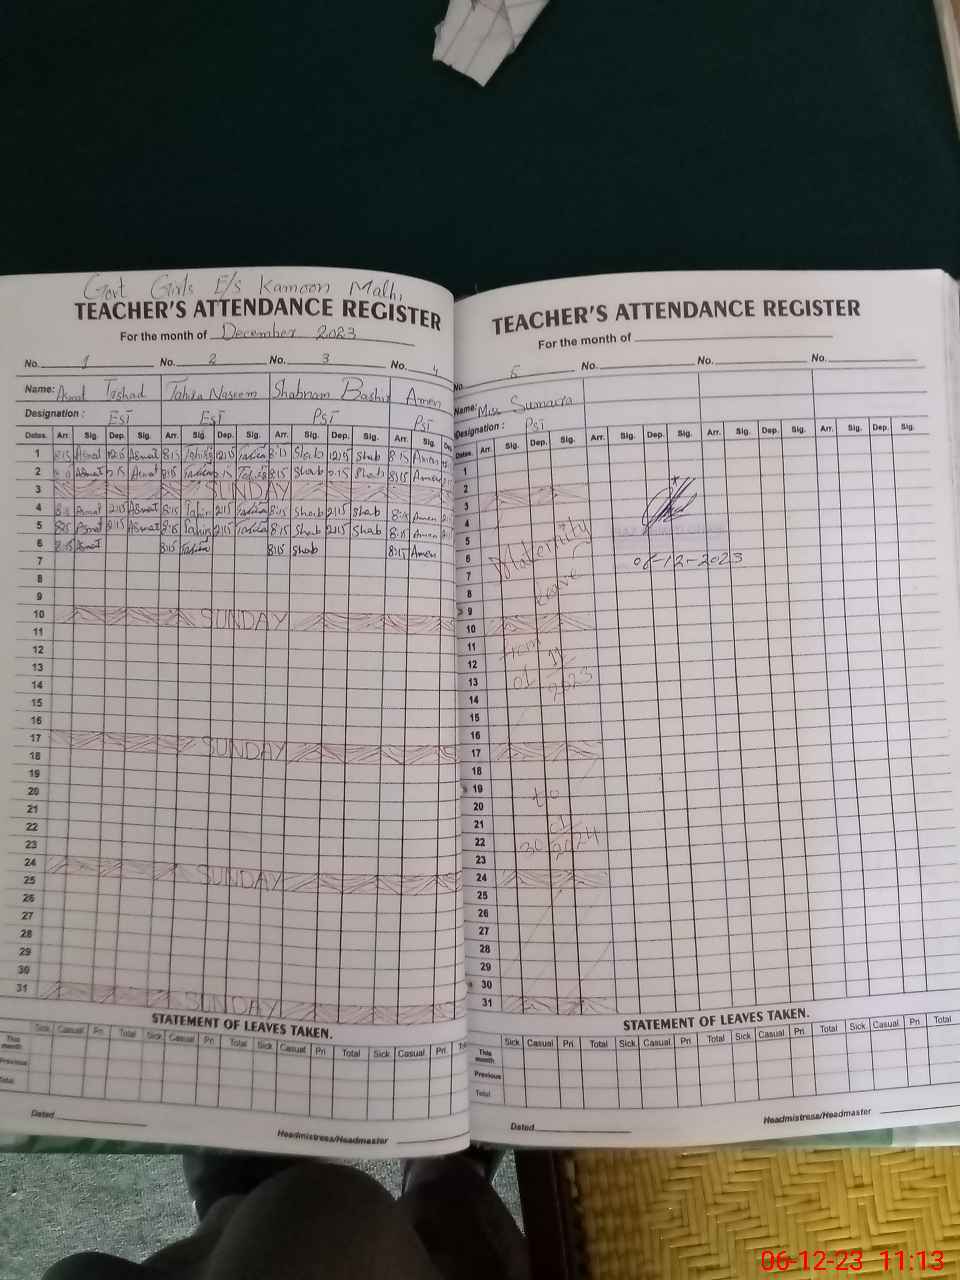 Govt Girls E/s Kamoon Malhi
TEACHER'S ATTENDANCE REGISTER
For the month of December 2023
No. 1 No. 2 No. 3 No. 4
Name: Asmat Tahira Naseem Shabnam Bashir Amen
Designation: EST EST PST PST
Dates. Arr. Sig. Dep. Sig. Arr. Sig. Dep. Sig. Arr. Sig. Dep. Sig. Arr. Sig.
1 8:15 Asmat 12:15 Asmat 8:15 Tahira 12:15 Tahira Shab 12:15 Shab 8:15 Amen
2 Asmat Asmat 8:15 Tahira Tahira 8:15 Shab 2:15 Shab 8:15 Amen
3 SUNDAY
4 Asmat 2:15 Asmat 8:15 Tahira 2:15 Tahira 8:15 Shab 2:15 Shab 8:15 Amen
5 8:15 Asmat 2:15 Asmat 8:15 Tahira 2:15 Tahira 8:15 Shab 2:15 Shab 8:15 Amen
6 8:15 Asmat 8:15 Tahira 8:15 Shab 8:15 Amen
7
8
9
10 SUNDAY
11
12
13
14
15
16
17 SUNDAY
18
19
20
21
22
23
24 SUNDAY
25
26
27
28
29
30
31 SUNDAY
STATEMENT OF LEAVES TAKEN.
Sick Casual Pri. Total Sick Casual Pri. Total Sick Casual Pri. Total Sick Casual Pri.
This month
Previous
Total
Dated
Headmistress/Headmaster
TEACHER'S ATTENDANCE REGISTER
For the month of
No. 5 No. No. No.
Name: Miss Sumaira
Designation: PST
Dates Arr. Sig. Dep. Sig. Arr. Sig. Dep. Sig. Arr. Sig. Dep. Sig. Arr. Sig. Dep. Sig.
1
2
3
4
5
6 Maternity 06-12-2023
7
8 Leave
9
10
11 from
12 11
13 01 2023
14
15
16
17
18
19
20 to
21 01
22 30 2024
23
24
25
26
27
28
29
30
31
STATEMENT OF LEAVES TAKEN.
Sick Casual Pri. Total Sick Casual Pri. Total Sick Casual Pri. Total Sick Casual Pri. Total
This month
Previous
Total
Dated
Headmistress/Headmaster
06-12-23 11:13